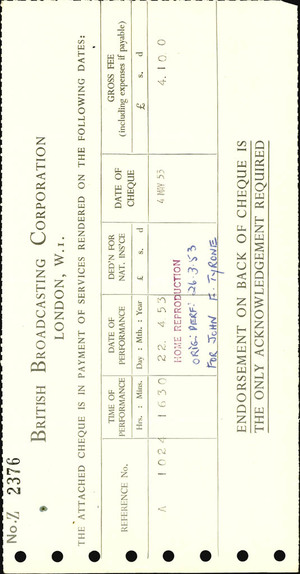 No. Z 2376
BRITISH BROADCASTING CORPORATION
LONDON, W.1.
THE ATTACHED CHEQUE IS IN PAYMENT OF SERVICES RENDERED ON THE FOLLOWING DATES:
REFERENCE No. TIME OF PERFORMANCE Hrs. : Mins. DATE OF PERFORMANCE Day : Mth. : Year DED'N FOR NAT. INS'CE £ s. d DATE OF CHEQUE GROSS FEE (including expenses if payable) £ s. d
A 1024 1630 22 4 53 4 MAY 53 4.10 0
HOME REPRODUCTION
ORIG: PERF: 26.3.53
FOR JOHN F. TYRONE
ENDORSEMENT ON BACK OF CHEQUE IS
THE ONLY ACKNOWLEDGEMENT REQUIRED